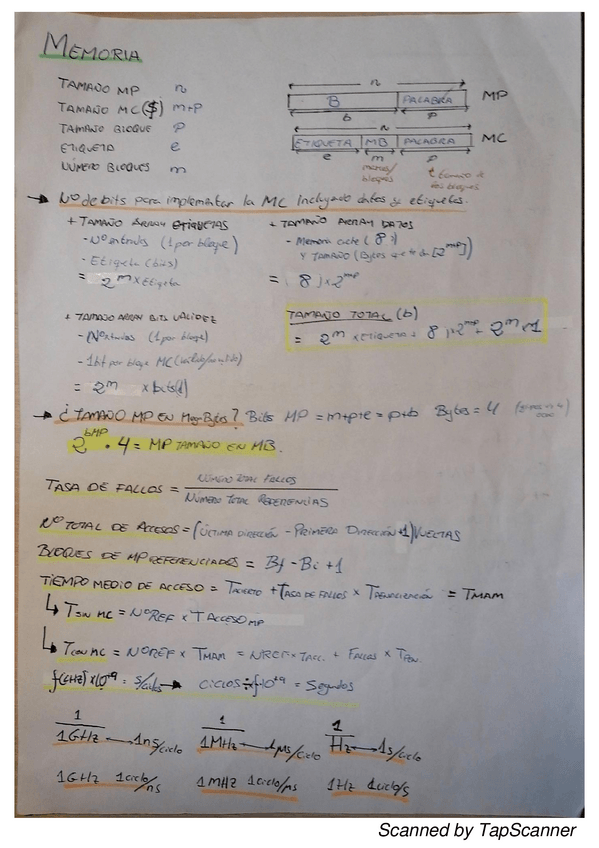 MEMORIA
TAMAÑO MP n
TAMAÑO MC ($) m+p
TAMAÑO BLOQUE p
ETIQUETA e
NÚMERO BLOQUES m
n
B PALABRA MP
b p
n
ETIQUETA MB PALABRA MC
e m p
→ Nº de bits para implementar la MC incluyendo datos y etiquetas.
+ TAMAÑO ARRAY ETIQUETAS
- Nº entradas (1 por bloque)
- Etiqueta (bits)
= 2^m x Etiqueta
+ TAMAÑO ARRAY DATOS
= 8 ) x 2^mp
+ TAMAÑO ARRAY BITS VALIDEZ
- Nº entradas (1 por bloque)
- 1 bit por bloque MC
= 2^m x bits(1)
TAMAÑO TOTAL (b)
= 2^m x ETIQUETA + 8 ) x 2^mp + 2^m x 1
→ ¿TAMAÑO MP EN MegaBytes? Bits MP = m+p+e = p+b Bytes = 4
2^bMP · 4 = MP TAMAÑO EN MB.
TASA DE FALLOS = NÚMERO TOTAL FALLOS / NÚMERO TOTAL REFERENCIAS
Nº TOTAL DE ACCESOS = (ÚLTIMA DIRECCIÓN - PRIMERA DIRECCIÓN +1) VUELTAS
BLOQUES DE MP REFERENCIADOS = Bf - Bi + 1
TIEMPO MEDIO DE ACCESO = TACIERTO + TASA DE FALLOS x TPENALIZACIÓN = TMAM
↳ TSIN MC = Nº REF x T ACCESO MP
↳ TCON MC = Nº REF x TMAM = NREF x TACC. + FALLOS x TPEN.
f(GHz) x 10^-9 = s/ciclos → CICLOS ÷ f·10^+9 = Segundos
1 / 1GHz → 1ns/ciclo
1 / 1MHz → 1μs/ciclo
1 / Hz → 1s/ciclo
1GHz 1ciclo/ns
1MHz 1ciclo/μs
1Hz 1ciclo/s
Scanned by TapScanner